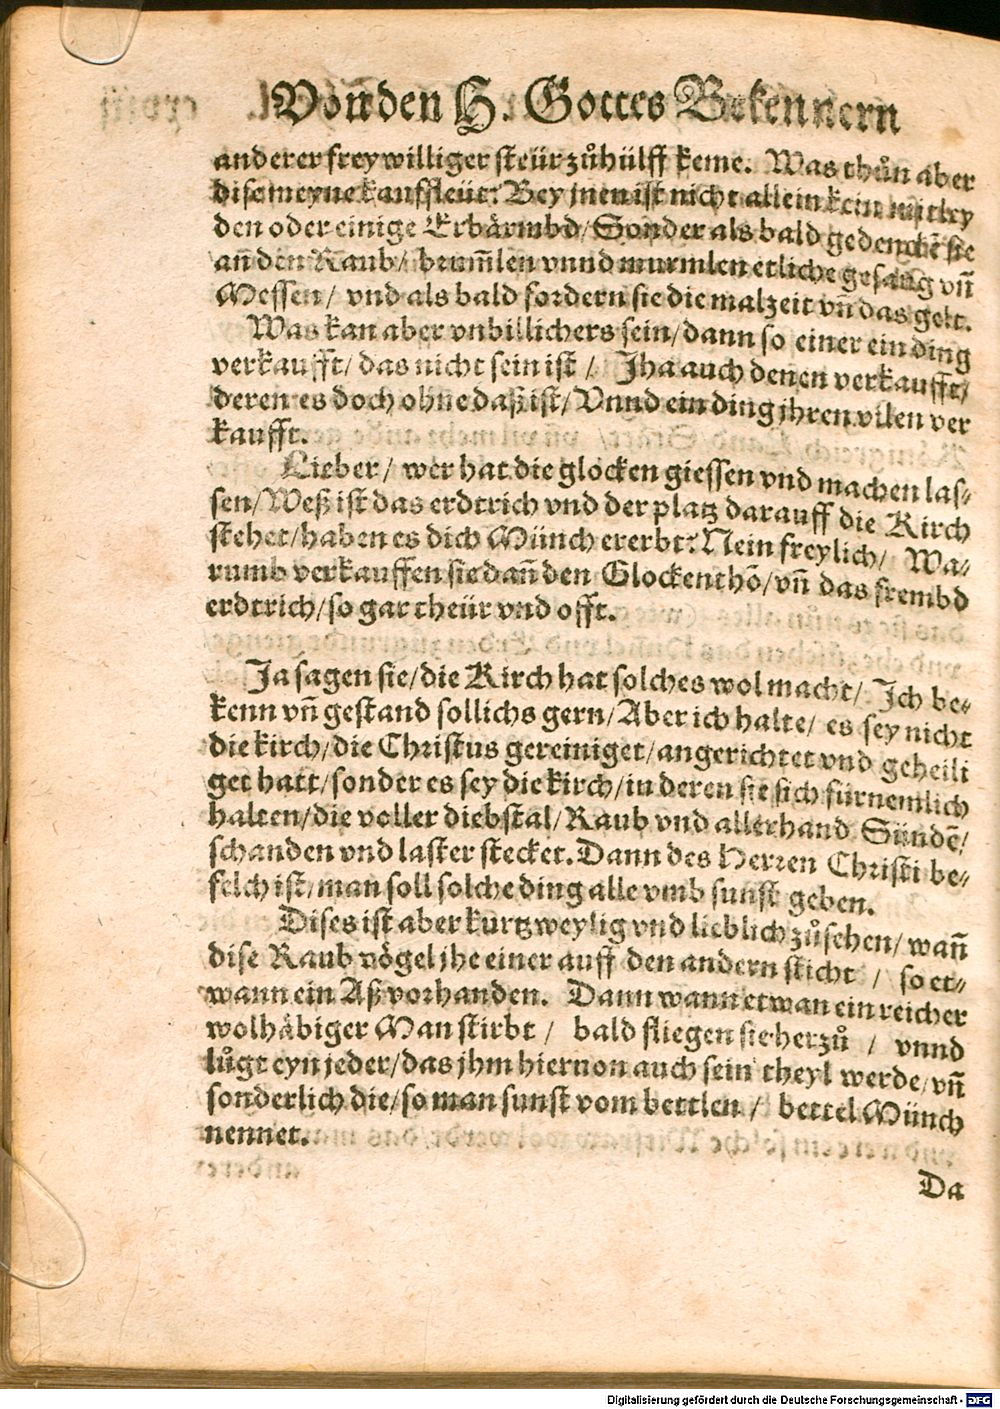 Von den H. Gottes Bekennern
anderer freywilliger steür zůhülff keme. Was thůn aber
dise meyne kauffleüt? Bey jnen ist nicht allein kein mitley
den oder einige Erbärmbd/ Sonder als bald gedenckẽ sie
an den Raub/ brum̃len vnnd murmlen etliche gesang vñ
Messen/ vnd als bald fordern sie die malzeit vñ das gelt.
Was kan aber vnbillichers sein/ dann so einer ein ding
verkaufft/ das nicht sein ist / Jha auch denen verkaufft/
deren es doch ohne daß ist/ Vnnd ein ding jhren vilen ver
kaufft.
Lieber/ wer hat die glocken giessen vnd machen las⸗
sen/ Weß ist das erdtrich vnd der platz darauff die Kirch
stehet/ haben es dich Münch ererbt? Nein freylich/ Wa⸗
rumb verkauffen sie dañ den Glockenthõ/ vñ das frembd
erdtrich/ so gar theür vnd offt.
Ja sagen sie/ die Kirch hat solches wol macht/ Ich be⸗
kenn vñ gestand sollichs gern/ Aber ich halte/ es sey nicht
die kirch/ die Christus gereiniget/ angerichtet vnd geheili
get hatt/ sonder es sey die kirch/ in deren sie sich fürnemlich
halten/ die voller diebstal/ Raub vnd allerhand Sündẽ/
schanden vnd laster stecket. Dann des Herren Christi be⸗
felch ist/ man soll solche ding alle vmb sunst geben.
Dises ist aber kurtzweylig vnd lieblich zůsehen/ wañ
dise Raub vögel jhe einer auff den andern sticht / so et⸗
wann ein Aß vorhanden. Dann wann etwan ein reicher
wolhäbiger Man stirbt / bald fliegen sie herzů / vnnd
lůgt eyn jeder/ das jhm hieruon auch sein theyl werde/ vñ
sonderlich die/ so man sunst vom bettlen / bettel Münch
nennet.
Da
Digitalisierung gefördert durch die Deutsche Forschungsgemeinschaft - DFG